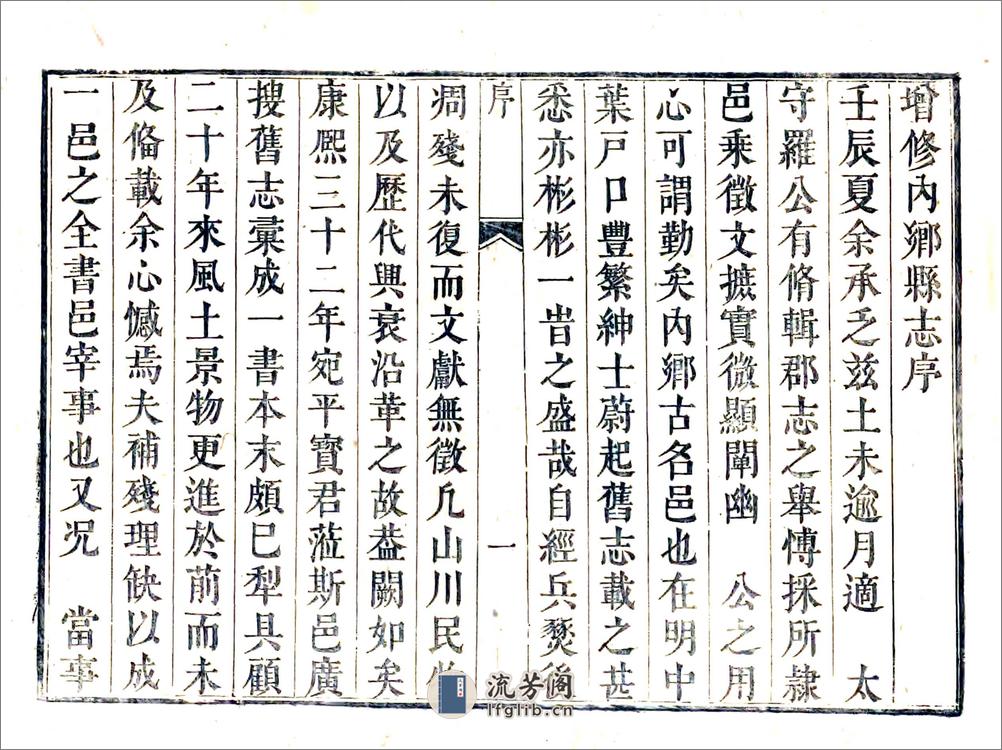 增修內鄉縣志序
壬辰夏余承乏茲土未逾月適　太
守羅公有脩輯郡志之舉愽採所隷
邑乘徵文摭實微顯闡幽　公之用
心可謂勤矣內鄉古名邑也在明中
葉戸口豐繁紳士蔚起舊志載之甚
悉亦彬彬一旹之盛哉自經兵燹後
序
一
凋殘未復而文獻無徵凢山川民物
以及歷代興衰沿革之故葢闕如矣
康熈三十二年宛平寳君蒞斯邑廣
搜舊志彙成一書本末頗巳犁具顧
二十年來風土景物更進於前而未
及俻載余心憾焉夫補殘理缺以成
一邑之全書邑宰事也又况　當事
流芳阁
lfglib.cn